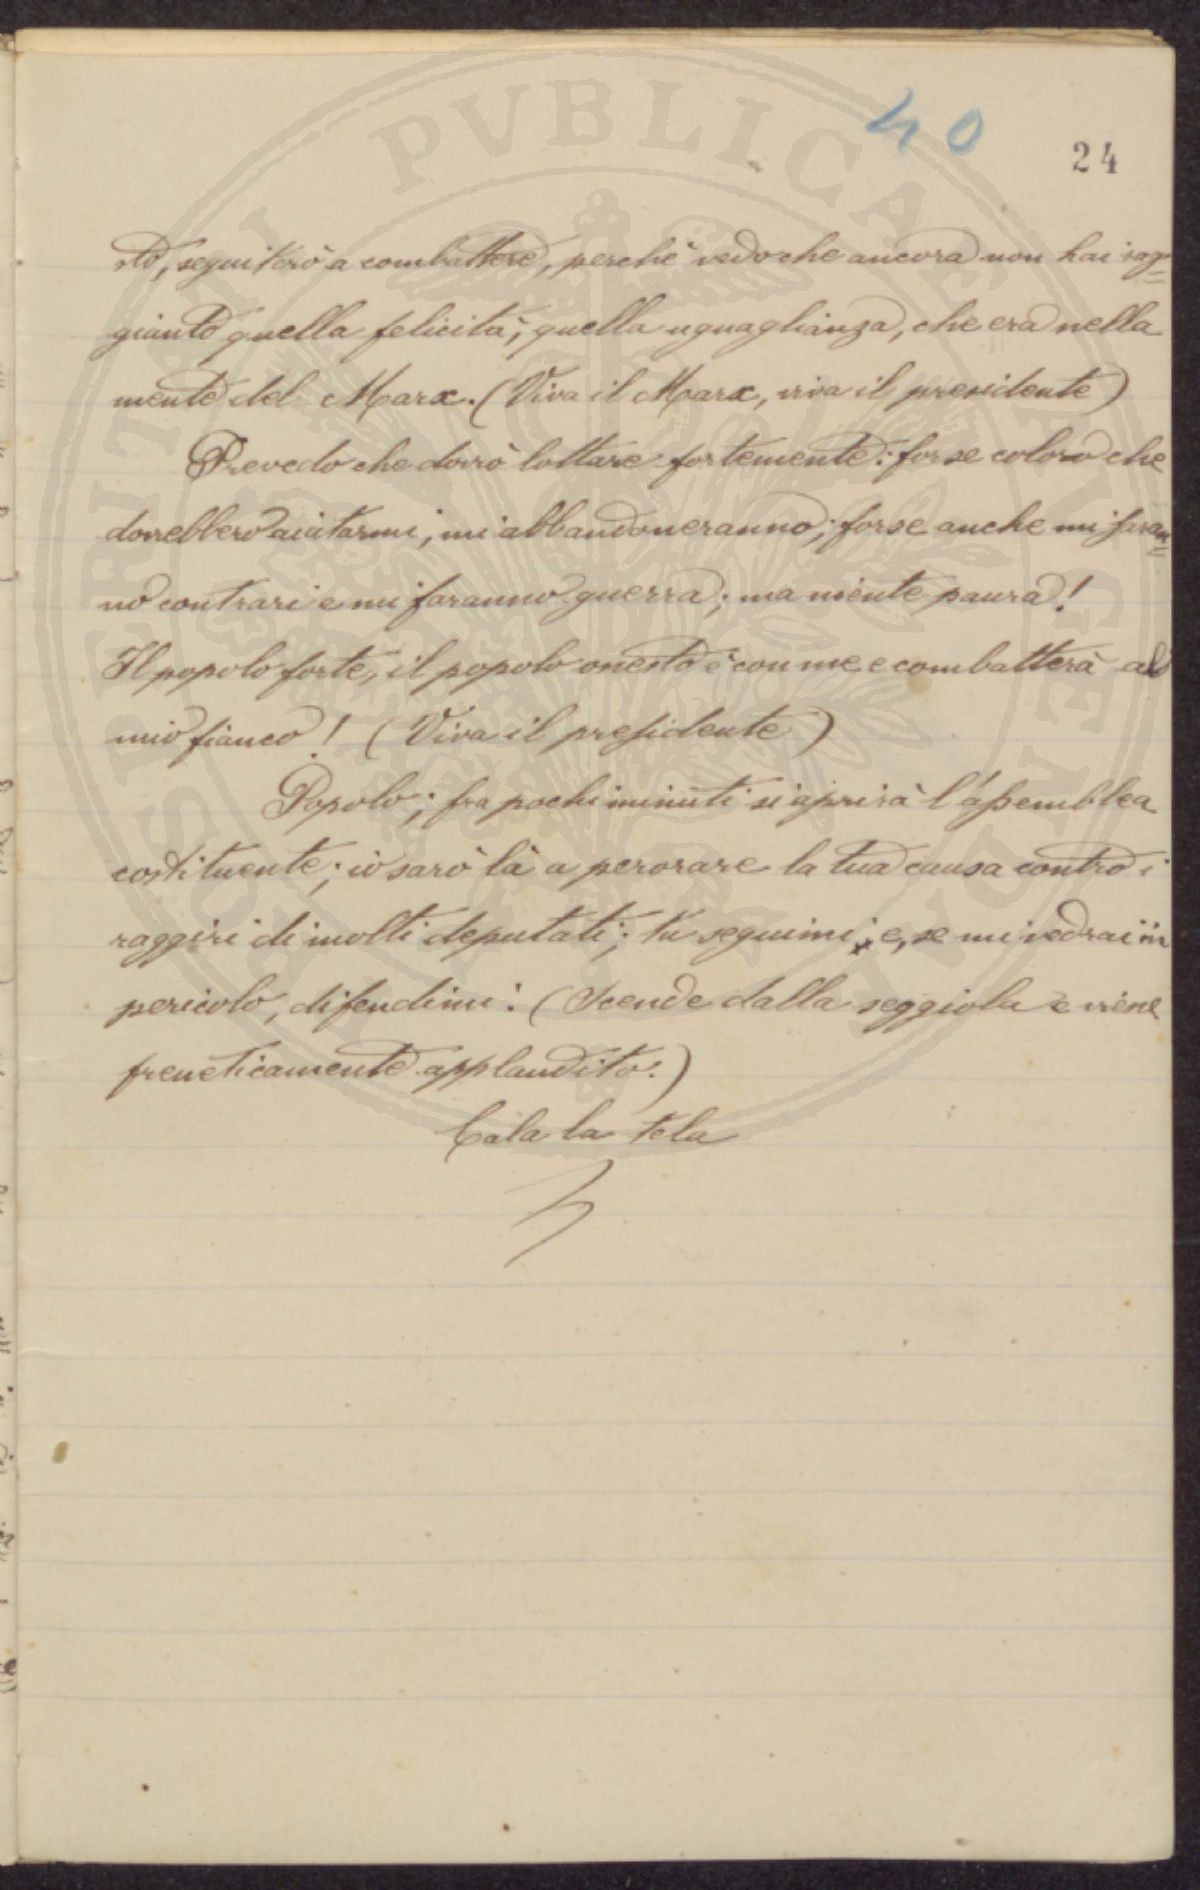 40
24
sto, seguiterò a combattere, perchè vedo che ancora non hai rag=
giunto quella felicità, quella uguaglianza, che era nella
mente del Marx. (Viva il Marx, viva il presidente)
Prevedo che dovrò lottare fortemente: forse coloro che
dovrebbero aiutarmi, mi abbandoneranno; forse anche mi saran=
no contrari e mi faranno guerra; ma niente paura!
Il popolo forte, il popolo onesto è con me e combatterà al
mio fianco! (Viva il presidente)
Popolo; fra pochi minuti si aprirà l'assemblea
costituente; io sarò là a perorare la tua causa contro i
raggiri di molti deputati; tu seguimi; e, se mi vedrai in
pericolo, difendimi: (Scende dalla seggiola e viene
freneticamente applaudito.)
Cala la tela
PVBLICAE